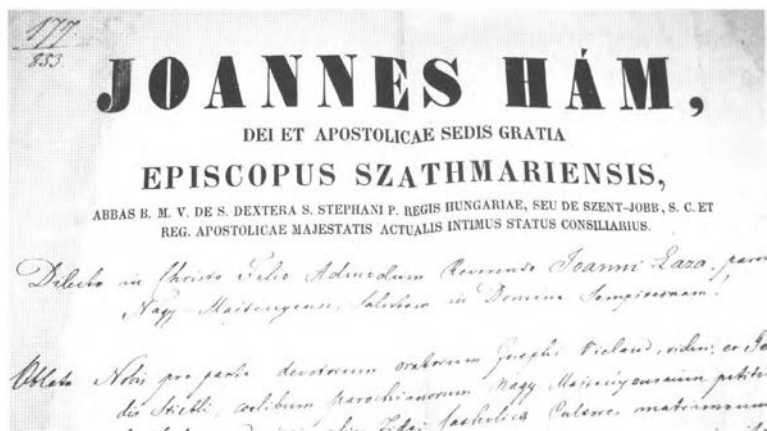 177
853.
JOANNES HÁM,
DEI ET APOSTOLICAE SEDIS GRATIA
EPISCOPUS SZATHMARIENSIS,
ABBAS B. M. V. DE S. DEXTERA S. STEPHANI P. REGIS HUNGARIAE, SEU DE SZENT-JOBB, S. C. ET
REG. APOSTOLICAE MAJESTATIS ACTUALIS INTIMUS STATUS CONSILIARIUS.
Dilecto in Christo Filio Admodum Reverendo Joanni Laza, paro
Nagy Maitenyensi, Salutem in Domino Sempiternam!
Oblata Nobis pro parte devotorum oratorum Josephi Wieland, vidui, et
coelibum parochianorum Nagy
Fidei Catholica Cultores matrimonium